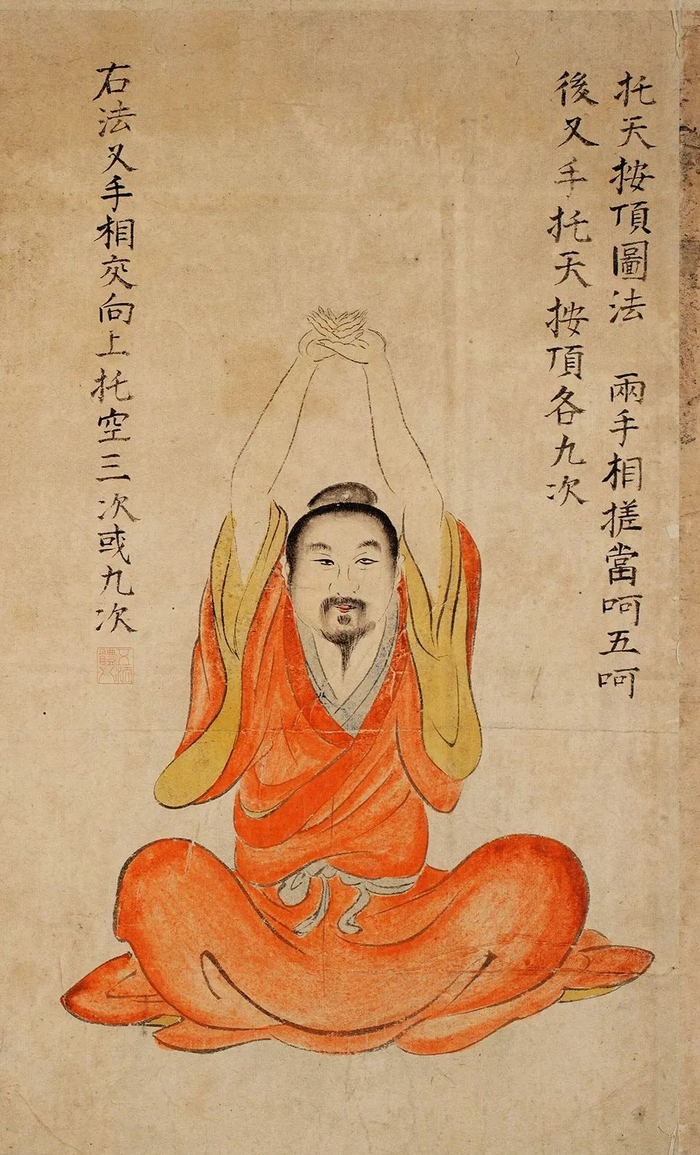 托天按頂圖法 兩手相搓當呵五呵
後叉手托天按頂各九次
右法叉手相交向上托空三次或九次